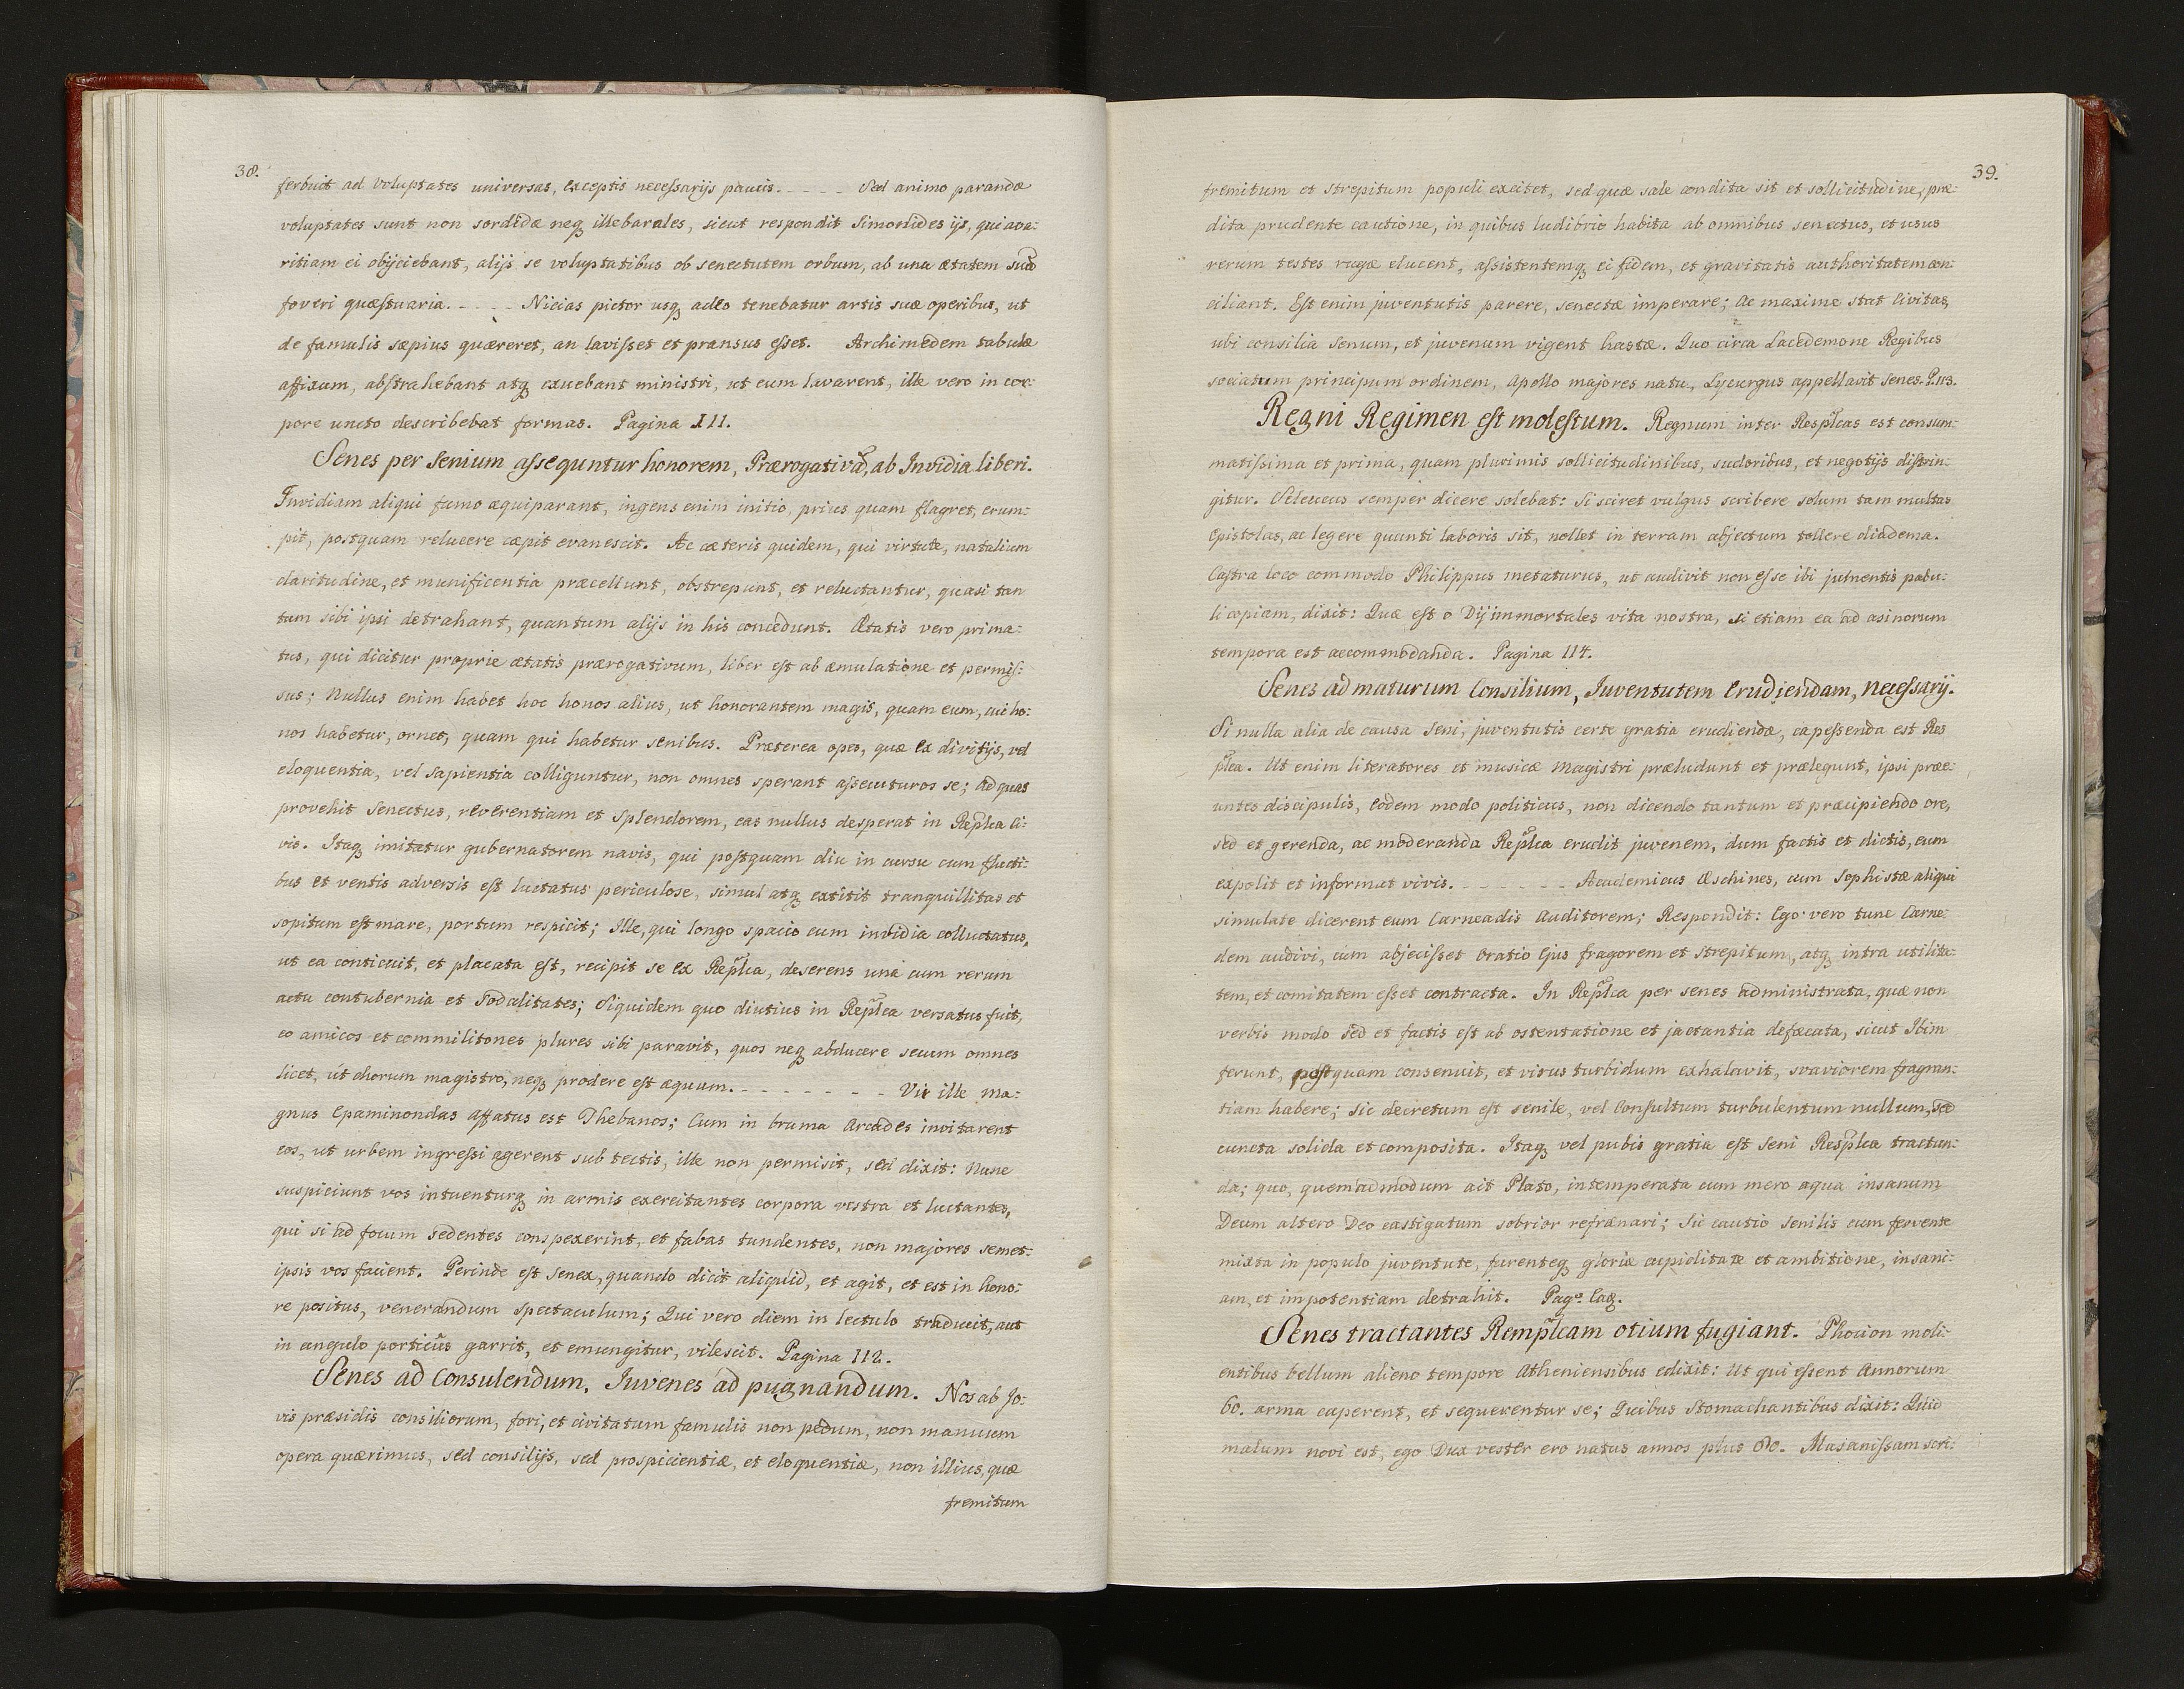 38.
ferbuit ad voluptates universas, exceptis necessarijs paucis. - - - - - Sed animo parandæ
voluptates sunt non sordidæ neq illebarales, sicut respondit Simonides ijs, qui ava:
ritiam ei obijciebant, alijs se voluptatibus ob senectutem orbum, ab una ætatem suã
foveri quæstuaria. - - - - - Nicias pictor usq adeo tenebatur artis suæ operibus, ut
de famulis sæpius quæreret, an lavisset et pransus esset. Archimedem tabulæ
affixum, abstrahebant atq exuebant ministri, ut eum lavarent, ille vero in cor:
pore uncto describebat formas. Pagina 111.
Senes per Senium assequntur honorem, Prærogativã, ab Invidia liberi.
Invidiam aliqui fumo æquiparant, ingens enim initio, prius quam flagret, erum:
pit, postquam relucere cæpit evanescit. Ac cæteris quidem, qui virtute, natalium
claritudine, et munificentia præcellunt, obstrepunt, et reluctantur, quasi tan
tum sibi ipsi detrahant, quantum alijs in his concedunt. Ætatis vero prima:
tus, qui dicitur proprie ætatis prærogativum, liber est ab æmulatione et permis:
sus; Nullus enim habet hoc honos alius, ut honorantem magis, quam eum, cui ho:
nos habetur, ornet, quam qui habetur senibus. Præterea opes, quæ ex divitijs, vel
eloquentia, vel sapientia colliguntur, non omnes sperant assecuturos se; ad quas
provehit Senectus, reverentiam et Splendorem, eas nullus desperat in Replca ci:
vis. Itaq imitatur gubernatorem navis, qui postquam diu in cursu cum flucti:
bus et ventis adversis est luctatus periculose, simul atq extitit tranquillitas et
sopitum est mare, portum respicit; Ille, qui longo spacio cum invidia colluctatus,
ut ea conticuit, et placata est, recipit se ex Replca, deserens una cum rerum
actu contubernia et Sodalitates; Siquidem quo diutius in Replca versatus fuit,
eo amicos et commilitones plures sibi paravit, quos neq abducere secum omnes
licet, ut chorum magistro, neq prodere est æquum. - - - - - - - Vir ille ma:
gnus Epaminondas affatus est Thebanos; Cum in bruma Arcades invitarent
eos, ut urbem ingressi agerent sub tectis, ille non permisit, sed dixit: Nunc
suspiciunt vos intuenturq in armis exercitantes corpora vestra et luctantes,
qui si ad focum sedentes conspexerint, et fabas tundentes, non majores semet:
ipsis vos facient. Perinde est senex, quando dicit aliquid, et agit, et est in hono:
re positus, venerandum spectaculum; Qui vero diem in lectulo traducit, aut
in angulo porticûs garrit, et emungitur, vilescit. Pagina 112.
Senes ad Consulendum, Iuvenes ad pugnandum. Nos ab Jo:
vis præsidis consiliorum, fori, et civitatum famulis non pedum, non manuum
opera quærimus, sed consilijs, sed prospicientiæ, et eloquentiæ, non illius, quæ
fremitum
39.
fremitum et strepitum populi excitet, sed quæ sale condita sit et sollicitudine, præ:
dita prudente cautione, in quibus ludibrio habita ab omnibus senectus, et usus
rerum testes rugæ elucent, assistentemq ei fidem, et gravitatis authoritatem con:
ciliant. Est enim juventutis parere, senectæ imperare; ac maxime stat Civitas,
ubi consilia Senum, et juvenum vigent hastæ. Quo circa Lacedemone Regibus
sociatum principum ordinem, Apollo majores natu, Lycurgus appellavit Senes. P. 113.
Regni Regimen est molestum. Regnum inter Resplcas est consum:
matissima et prima, quam plurimis sollicitudinibus, sudoribus, et negotijs distrin:
gitur. Seleucus semper dicere solebat: Si sciret vulgus scribere solum tam multas
Epistolas, ac legere quanti laboris sit, nollet in terram abjectum tollere diadema.
Castra loco commodo Philippus metaturus, ut audivit non esse ibi jumentis pabu:
li copiam, dixit: Quæ est o Dij immortales vita nostra, si etiam ea ad asinorum
tempora est accommodanda. Pagina 114.
Senes ad maturum Consilium, Iuventutem Erudiendam, necessarij.
Si nulla alia de causa Seni, juventutis certe gratia erudiendæ, capessenda est Res
plca. Ut enim literatores et musicæ magistri præludunt et prælegunt, ipsi præe:
untes discipulis, Eodem modo politicus, non dicendo tantum et præcipiendo ore,
sed et gerenda, ac moderanda Replca erudit juvenem, dum factis et dictis, eum
expolit et informat vivis. - - - - - - - Academicus Æschines, cum Sophistæ aliqui
simulate dicerent eum Carneadis Auditorem; Respondit: Ego vero tunc Carne:
dem audivi, cum abjecisset Oratio Ejus fragorem et strepitum, atq intra utilita:
tem, et comitatem esset contracta. In Replca per senes administrata, quæ non
verbis modo sed et factis est ab ostentatione et jactantia defæcata, sicut Ibim
ferunt, postquam consenuit, et virus turbidum exhalavit, svaviorem fragran:
tiam habere; Sic decretum est senile, vel Consultum turbulentum nullum, sed
cuncta solida et composita. Itaq vel pubis gratia est Seni Resplca tractan:
da; quo, quemadmodum ait Plato, intemperata cum mero aqua insanum
Deum altero Deo castigatum sobrior refrænari; Sic cautio Senilis cum fervente
mixta in populo juventute, furenteq gloriæ cupiditate et ambitione, insani:
am, et impotentiam detrahit. Paga. Eaq.
Senes tractantes Remplcam otium fugiant. Phocion moli:
entibus bellum alieno tempore Atheniensibus edixit: Ut qui essent Annorum
60. arma caperent, et sequerentur se; Quibus Stomachantibus dixit: Quid
malum novi est, ego Dux vester ero natus annos plus 80. Masanissam scri: